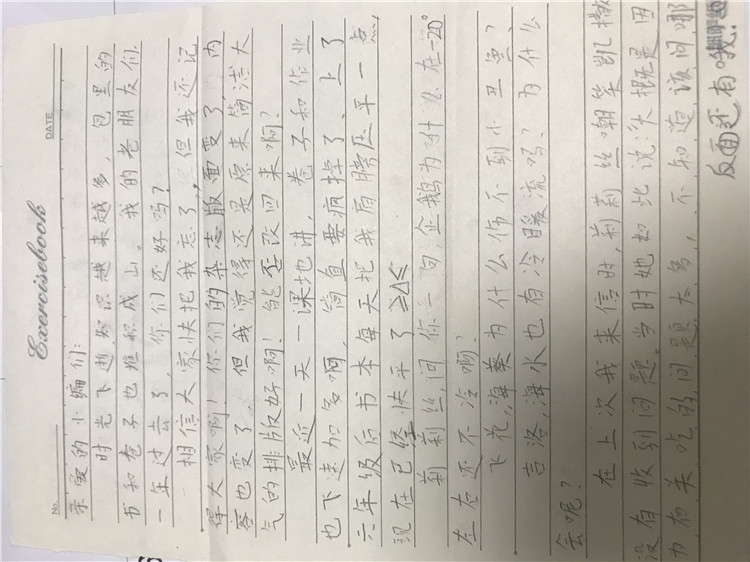 No.
Exercisebook
DATE
亲爱的小编们:
时光飞逝,知识越来越多,包里的
书和卷子也堆积成山。我的老朋友们,
一年过去了,你们还好吗?
相信大家快把我忘了,但我还记
得大家啊!你们的杂志版面变了,内
容也变了。但我觉得还是原来简洁大
气的排版好啊!能否改回来啊?
最近一天一课地讲,卷子和作业
也下速加多啊,简直要疯掉了、上了
六年级后书本每天把我肩膀压平一点,
现在已经快平了 ≥△≤
莉莉丝,问你一句,企鹅为什么在-20°
左右还不冷啊?
飞花,海葵为什么伤不到小丑鱼?
吉洛,海水也有冷暖流吗?为什么
会呢?
在上次我来信时,莉莉丝嘲笑凯撒
没有收到问题。当时她却说:大概是因
为有关吃的问题太多,不知道该问哪
反面还有哦!